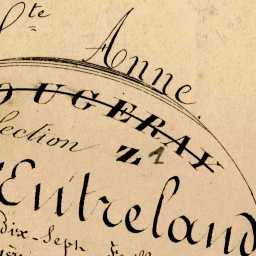 Ste Anne
OUGERAY
Section Z1
Entreland
dix-Sept